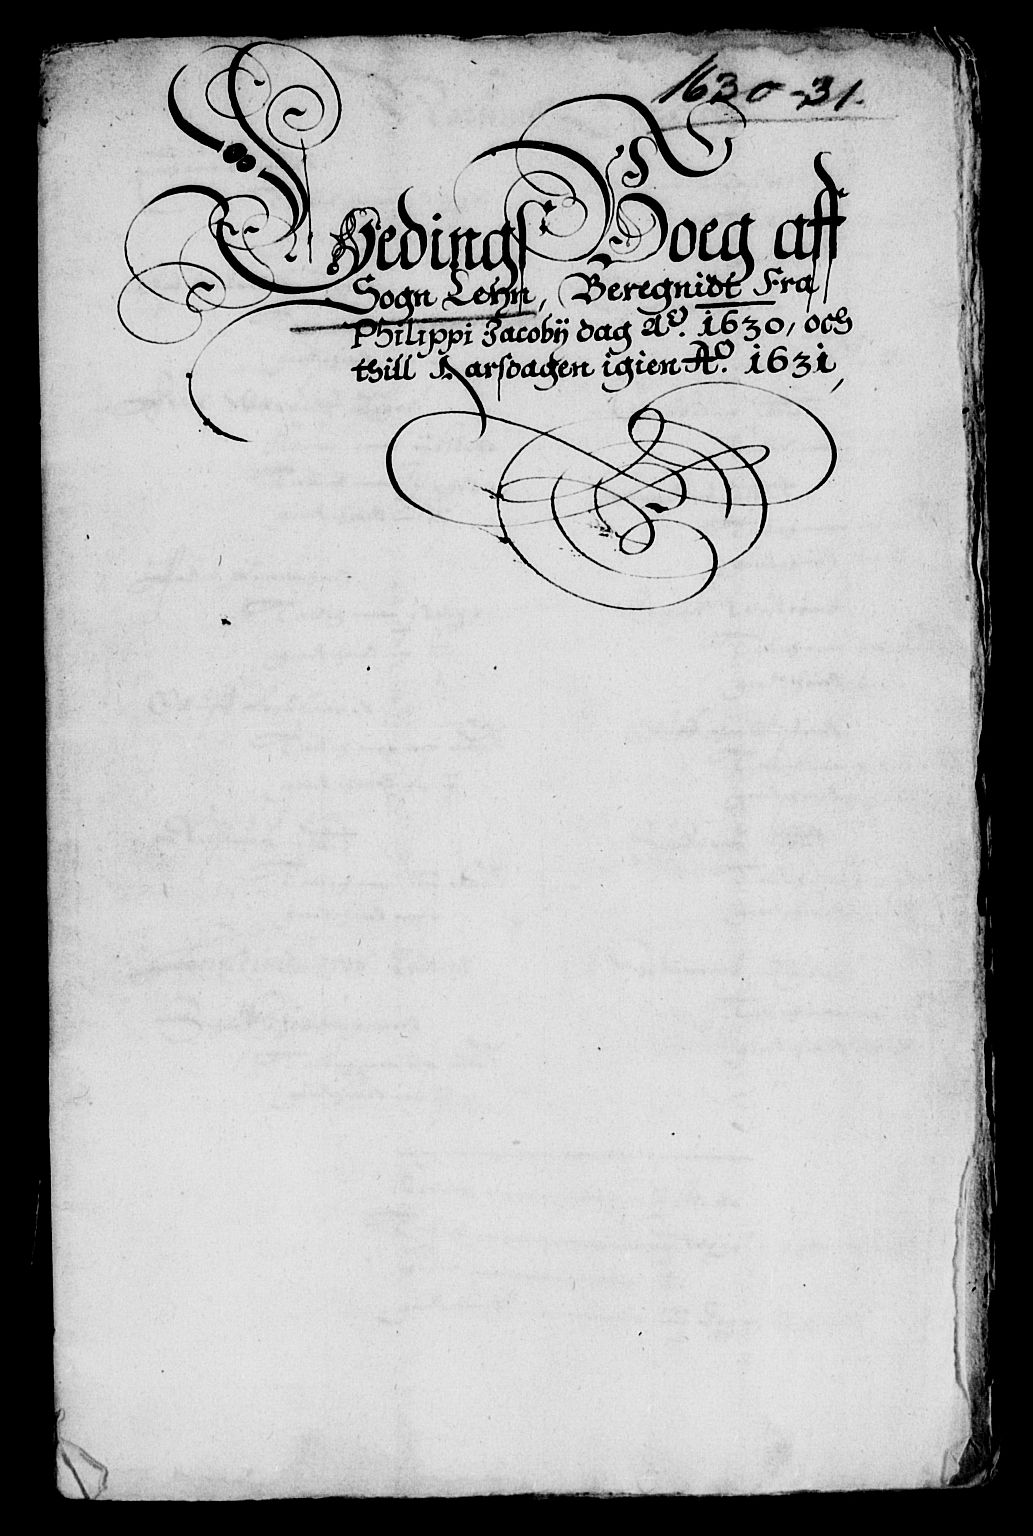 1630-31.
Tiedings Boeg aff
Sogn Lehn, Beregnidt Fra
Philippi Jacobij dag Aō. 1630, och
thill Aarsdagen igien Aō. 1631,